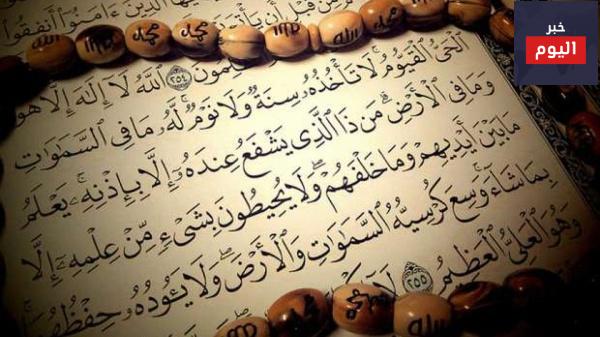 خبر
اليوم
ٱلَّذِينَ ءَامَنُوٓا۟ أَنفِقُوا۟
مِّن قَبْلِ أَن يَأْتِىَ
ٱللَّهُ لَآ إِلَٰهَ إِلَّا هُوَ ٢٥٤
ٱلْحَىُّ ٱلْقَيُّومُ ۚ لَا تَأْخُذُهُۥ سِنَةٌ وَلَا نَوْمٌ ۚ لَّهُۥ مَا فِى ٱلسَّمَٰوَٰتِ
وَمَا فِى ٱلْأَرْضِ ۗ مَن ذَا ٱلَّذِى يَشْفَعُ عِندَهُۥٓ إِلَّا بِإِذْنِهِۦ ۚ يَعْلَمُ
مَا بَيْنَ أَيْدِيهِمْ وَمَا خَلْفَهُمْ ۖ وَلَا يُحِيطُونَ بِشَىْءٍ مِّنْ عِلْمِهِۦٓ إِلَّا
بِمَا شَآءَ ۚ وَسِعَ كُرْسِيُّهُ ٱلسَّمَٰوَٰتِ وَٱلْأَرْضَ ۖ وَلَا يَـُٔودُهُۥ حِفْظُهُمَا ۚ
وَهُوَ ٱلْعَلِىُّ ٱلْعَظِيمُ ٢٥٥ لَآ
الله
محمد
محمد
الله
الله